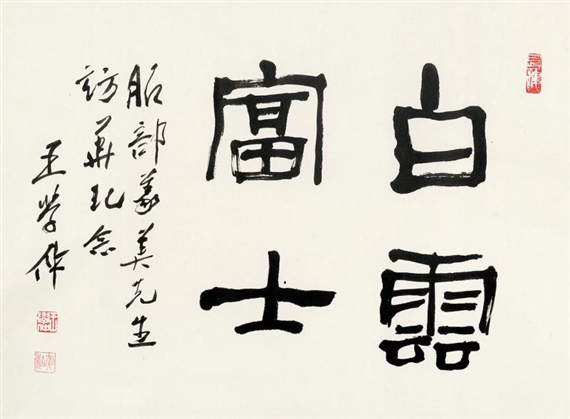 白雲
富士
服部義美先生
訪華紀念
王学仲